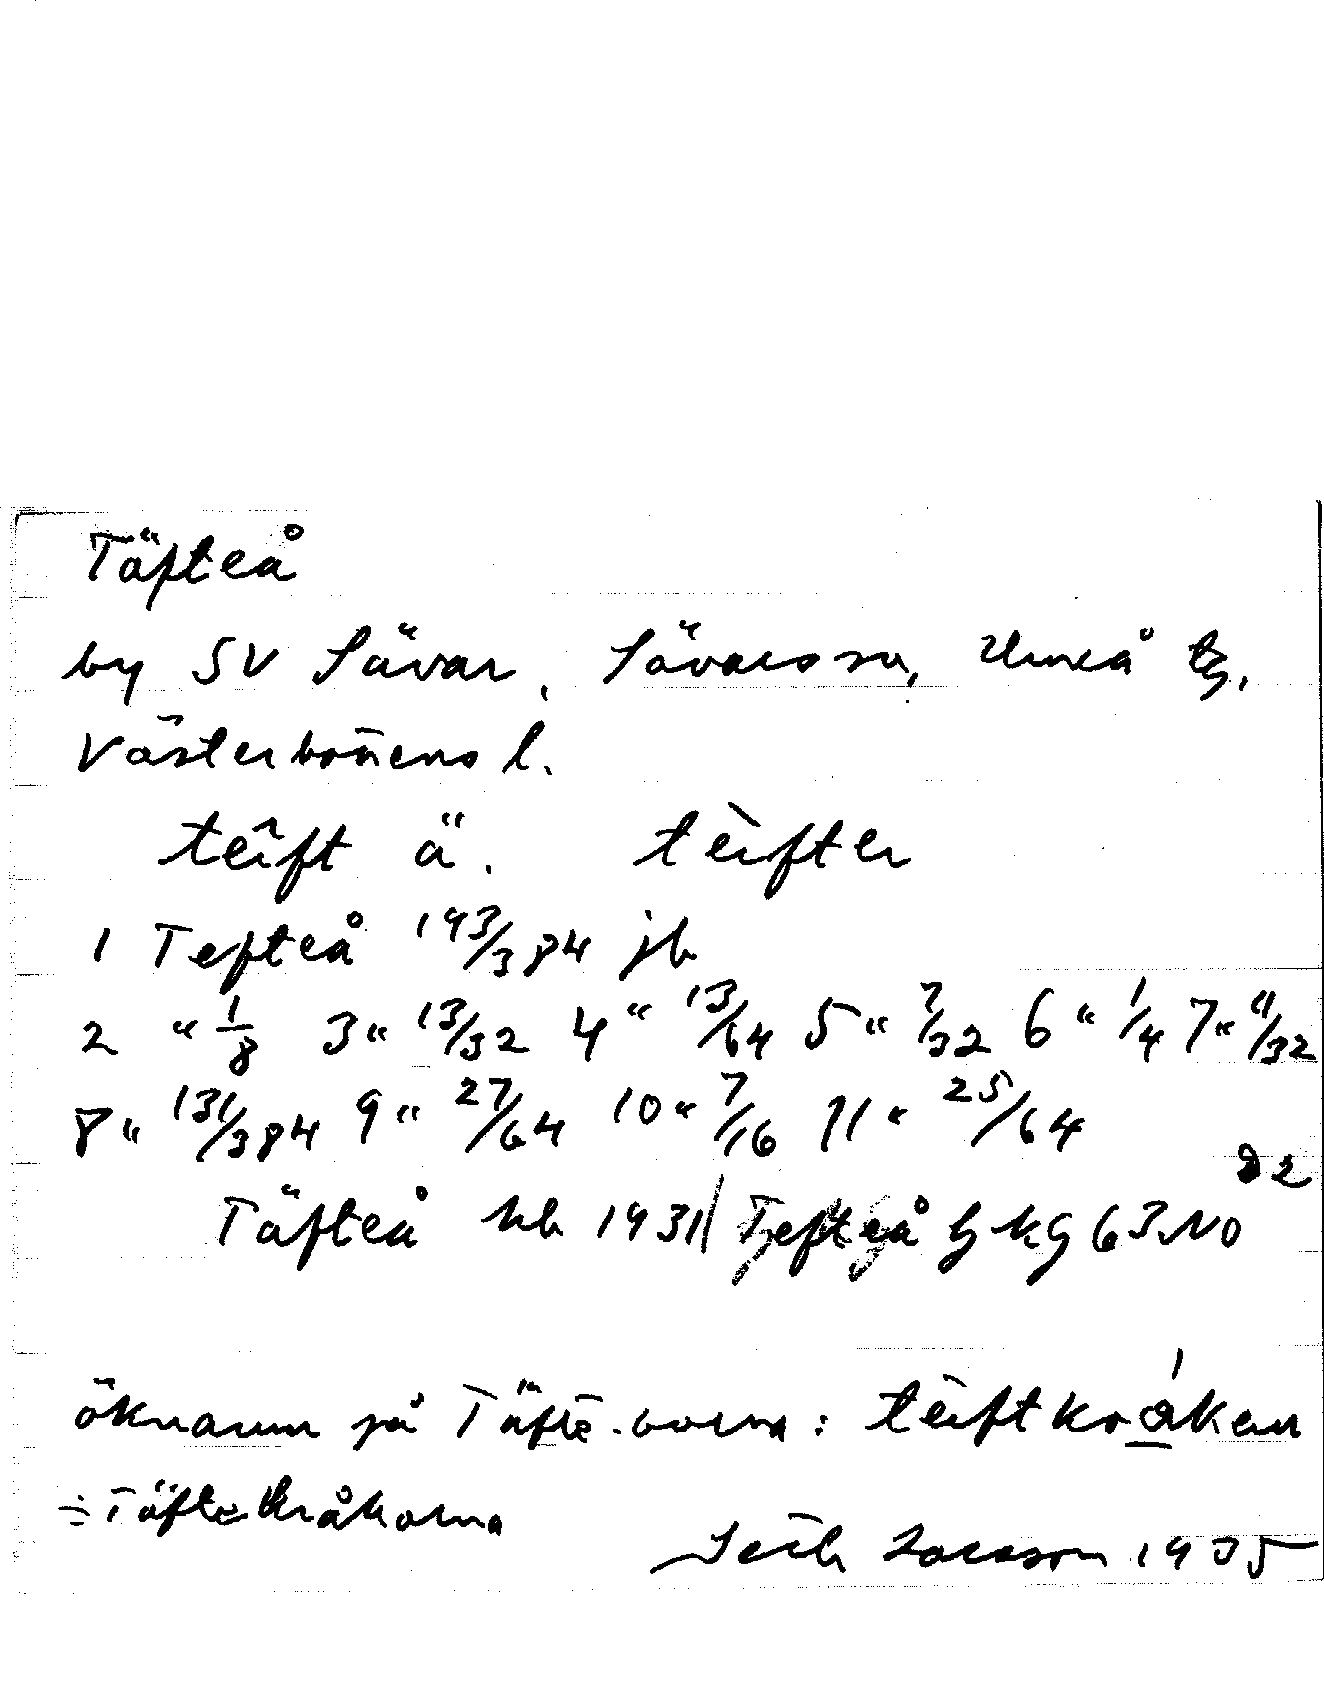 Täfteå
by SV Sävar, Sävars sn, Umeå tg,
Västerbottens l.
tèift ä. tèifter
1 Tefteå 193/384 jb
2 " 1/8 3 " 13/32 4 " 13/64 5 " 7/32 6 " 1/4 7 " 11/32
8 " 131/384 9 " 27/64 10 " 7/16 11 " 25/64
Täfteå kb 1931 / Tefteå hkg 63 NO d2
öknamn på Täfte-borna: tèiftkråken
= Täftekråkorna
Larsson 1935